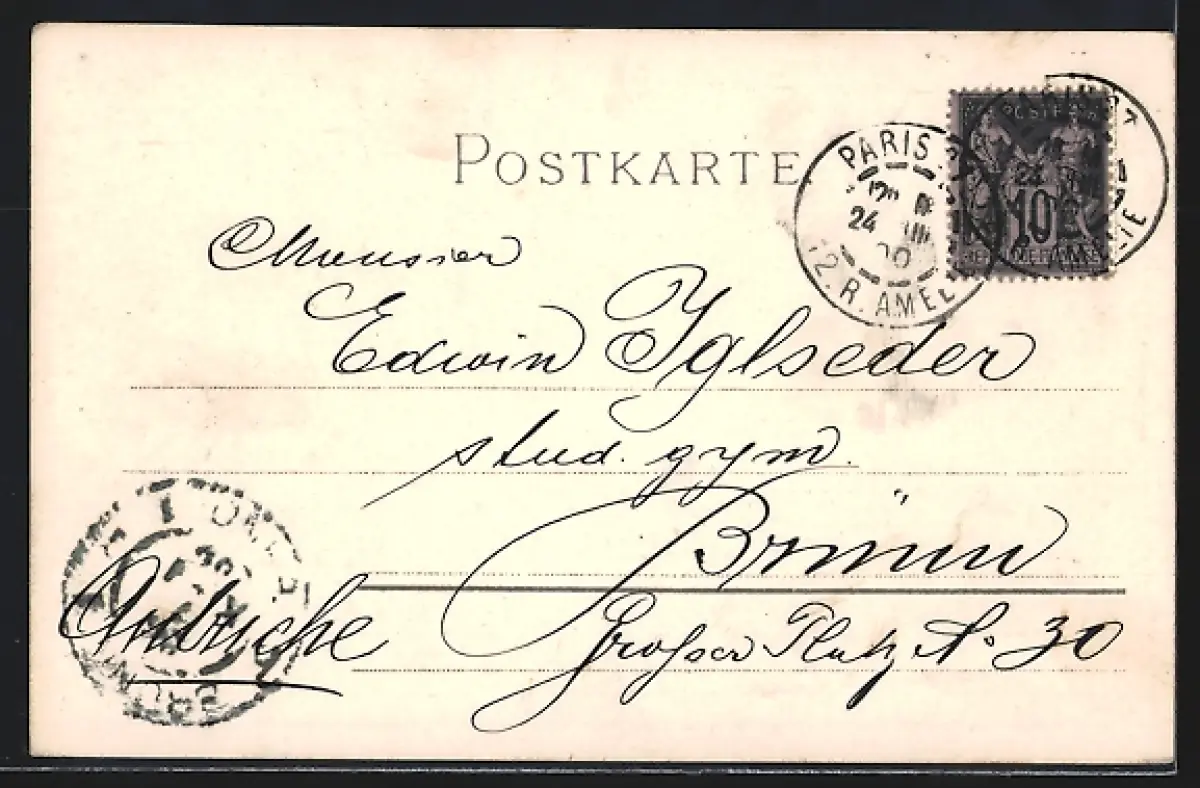 POSTKARTE
PARIS
24
12. R. AMEL
PARIS
POSTE
10
AMELIE
Monsieur
Edwin Iglseder
stud. gym.
Brünn
Autriche
Großer Platz No 30